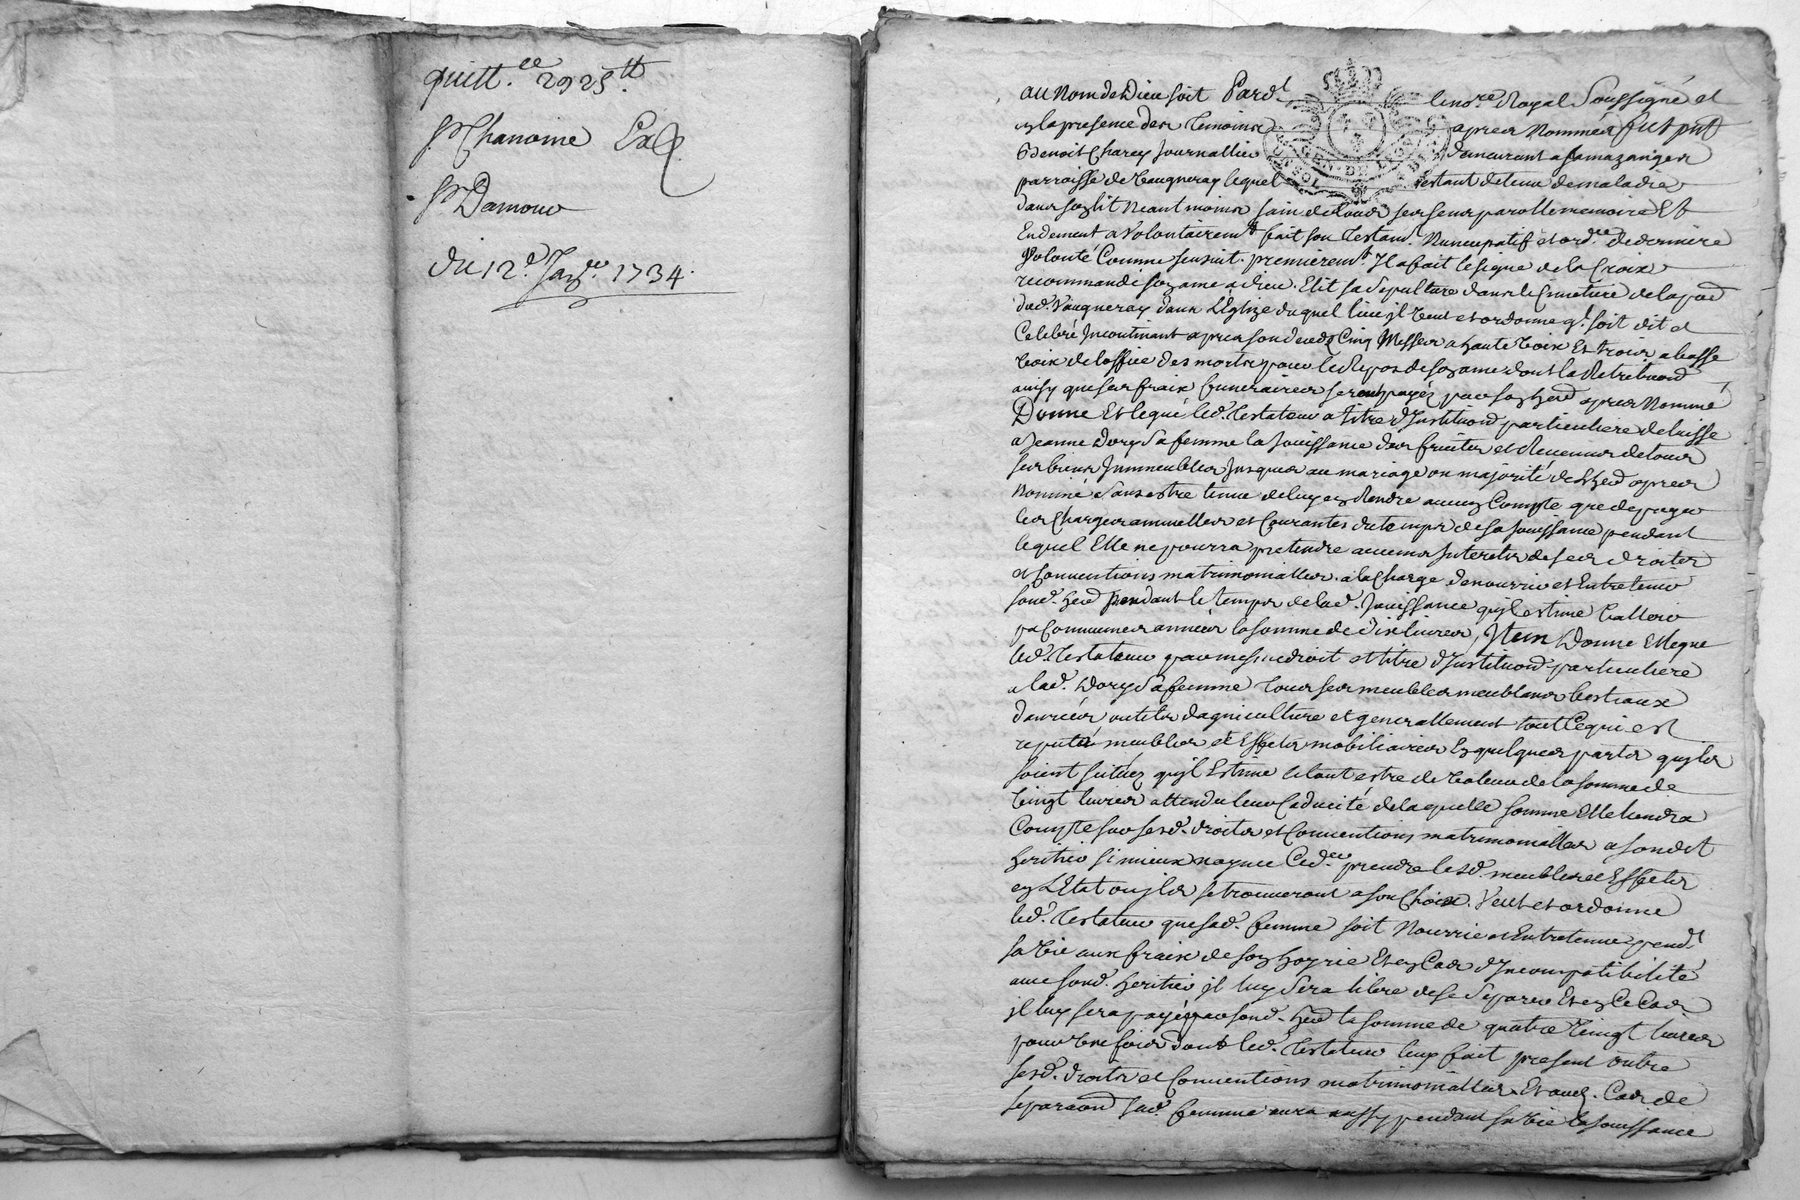 quitt.ce 2925 tt
Sr Chanoine
Sr Damour
du 12e Janv. 1734.
au Nom de Dieu soit Pard.t le no.re Royal Soussigné et
en la presence des temoins apres Nommés fut p.nt
Benoit Charey Journallier demeurant a
parroisse de Vaugneray lequel estant detenu de maladie
dans son lit neantmoins sain de tous ses sens parolle memoire Et
Endement a Volontairem.t fait son Testam.t Nuncupatif et ord.ce de derniere
Volonté Comme sensuit. premierem.t Il a fait le signe de la Croix
recommandé son ame a dieu. Elit sa sepulture dans le Cimetiere de la p.
dud. Vaugneray dans L'Eglize duquel lieu il veut et ordonne q.l soit dit et
Celebré Incontinant apres son deceds Cinq Messes a haute voix Et trois a basse
voix de loffice des morts pour le Repos de son ame dont la Retribuon
ainsy que ses fraix funeraires seront payés par son her. apres Nommé
Donne Et legué led. Testateur a titre d'Instituon particuliere delaisse
a Jeanne Dory sa femme la Jouissance des fruits et Revenus de tous
ses biens Immeubles Jusques au mariage ou majorité de L'her. apres
Nommé Sans estre tenue de luy en Rendre aucun Compte que de payer
les Charges annuelles et Courantes du temps de sa Jouissance pendant
lequel Elle ne pourra pretendre aucuns Interets de ses droits
et Conventions matrimonialles. a la Charge de nourrir et Entretenir
sond. her. pendant le temps de lad. Jouissance quil estime Valloir
par Communes années la somme de dix livres, Item Donne Et legue
led. Testateur par mesme droit et titre d'Instituon particuliere
a lad. Dory sa femme tous ses meubles meublans bestiaux
danrées outils dagriculture et generallement tout Ce qui est
reputés meubles et Effets mobiliaires En quelques parts quils
soient situez quil Estime le tout estre de Valeur de la somme de
Vingt livres attendu leur Caducité de laquelle somme Elle tiendra
Compte sur sesd. droits et Conventions matrimonialles a son dit
heritier si mieux nayme prendre lesd. meubles et Effets
en L'Etat ou ils se trouveront a son Choix. Veut et ordonne
led. Testateur que sad. femme soit Nourrie et Entretenue pend.t
sa vie aux fraix de son hoyrie Et en Cas d'Incompatibilité
avec sond. heritier il luy sera libre de se separer Et en Ce Cas
il luy sera payé par sond. her. la somme de quatre Vingt livres
pour Une fois dont led. Testateur luy fait present outre
sesd. droits et Conventions matrimonialles. Et aud. Cas de
separaon sad. femme aura aussy pendant sa vie la Jouissance